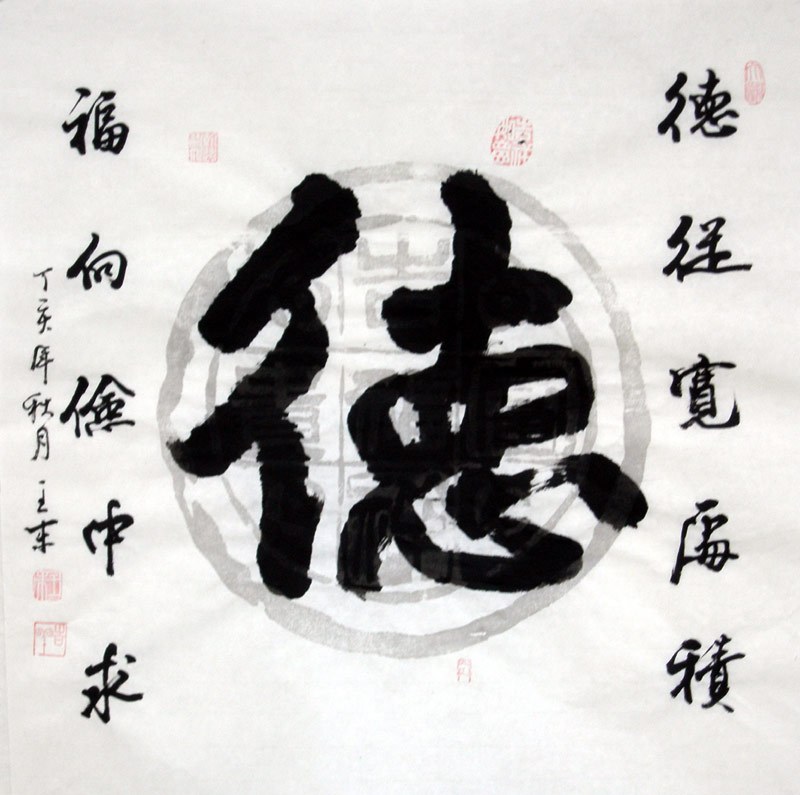 德從寬處積
德
福向儉中求
丁亥年秋月王東